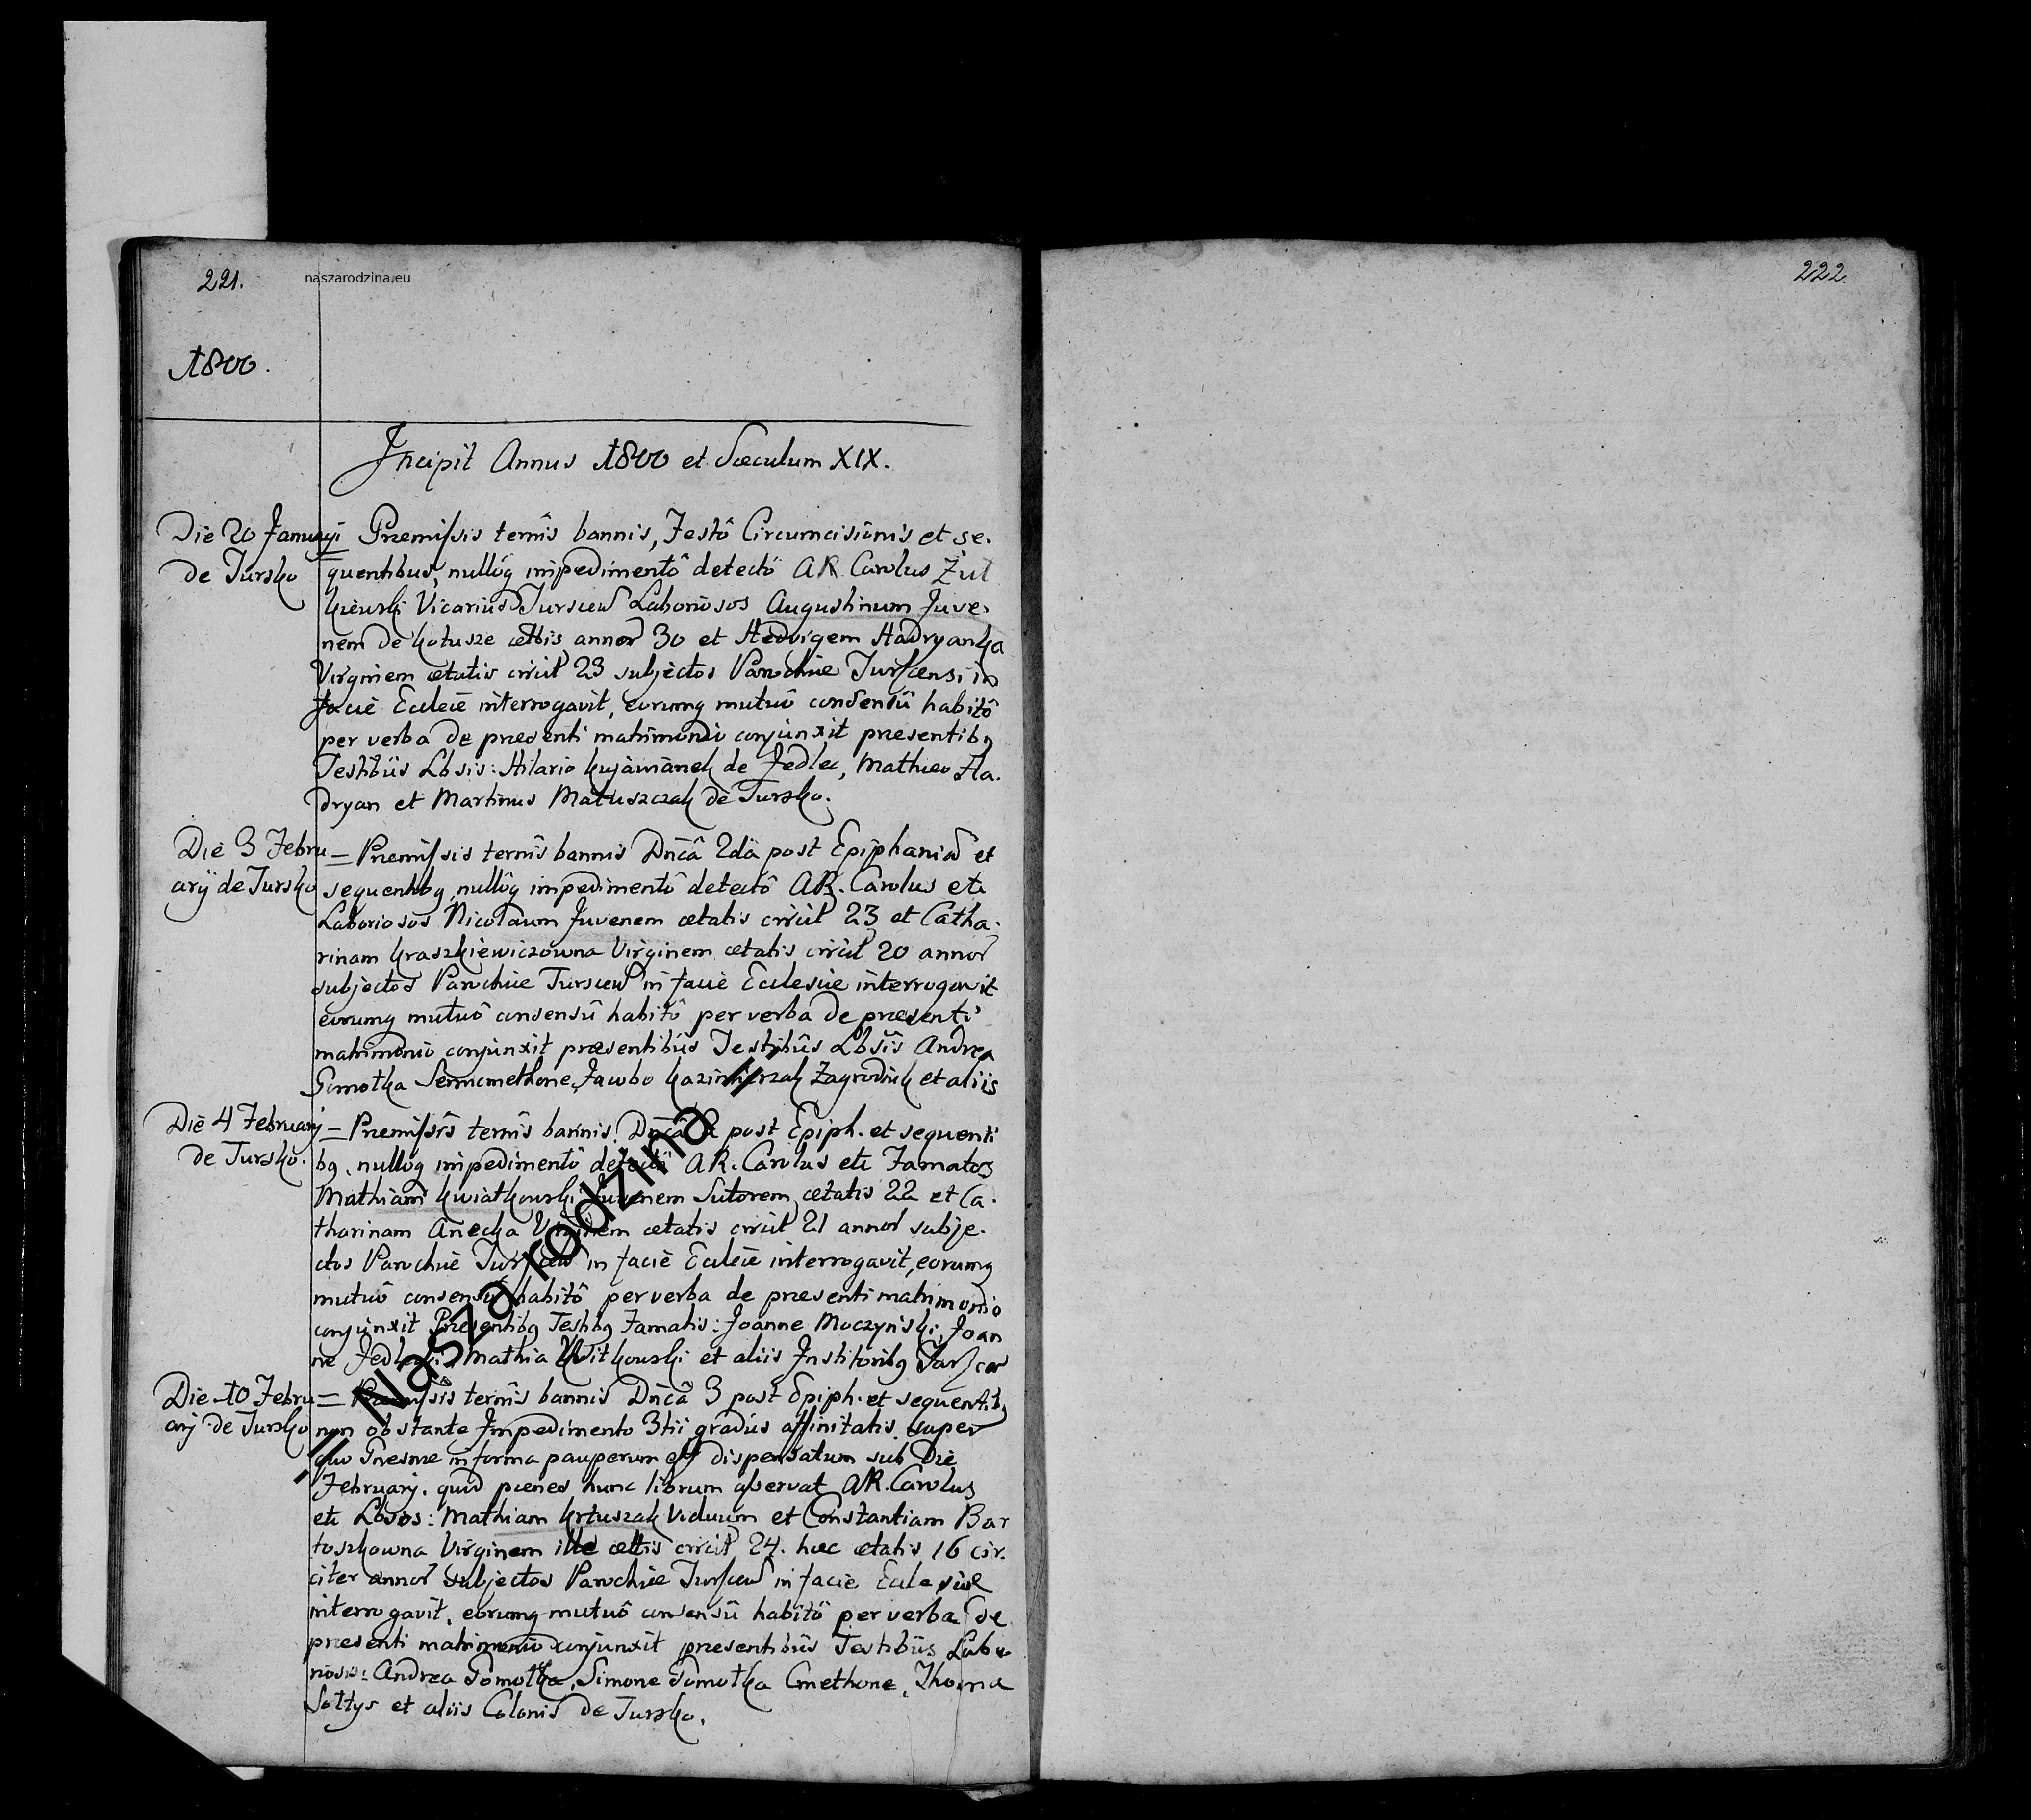 221.
naszarodzina.eu
222.
1800.
Incipit Annus 1800 et Sæculum XIX.
Die 20 Januarÿ
de Tursko
Præmissis ternis bannis, Festô Circumcisiônis et se-
quentibus, nullôq impedimentô detectô AR. Carolus Żuł
kiewski Vicarius Turscen Laboriosos Augustinum Juve-
nem de Kotusze ættis annor 30 et Hedvigem Hadryanka
Virginem ætatis circit 23 subjectos Parochiæ Turscensi in
facie Ecclèiæ interrogavit, eorumq mutuô consensû habitô
per verba de præsenti matrimonio conjunxit præsentibq
Testibûs Lbsis: Hilario Kujawianek de Jedlec, Mathæo Ha-
dryan et Martinus Matuszczak de Tursko.
Die 3 Febru
arÿ de Tursko
= Præmissis ternîs bannis Dñcâ 2dâ post Epiphaniã et
sequentibq, nullôq impedimentô detectô AR. Carolus etc
Laboriosos Nicolaum Juvenem ætatis circit 23 et Catha-
rinam Kraszkiewiczowna Virginem ætatis circit 20 annor
subjectos Parochiæ Turscen in facie Ecclesiæ interrogavit
eorumq mutuô consensû habitô per verba de præsenti
matrimonio conjunxit præsentibûs Testibûs Lbsîs Andrea
Gomołka Semicmethone, Jacobo Kazimierzak Zagrodnik et aliis
Die 4 Februarÿ
de Tursko.
= Præmissîs ternîs bannis Dñcâ 2 post Epiph. et sequenti
bq, nullôq impedimentô detectô AR. Carolus etc Famatos
Mathiam Kwiatkowski Juvenem Sutorem ætatis 22 et Ca-
tharinam Anecka Virginem ætatis circit 21 annor subje-
ctos Parochiæ Turscen in facie Ecclèiæ interrogavit, eorumq
mutuô consensû habitô per verba de præsenti matrimonio
conjunxit Præsentibq Testibq Famatis: Joanne Moczyński, Joan
ne Mathia Witkowski et aliis Institoribq
Die 10 Febru
arÿ de Tursko
= Præmissîs ternîs bannis Dñcâ 3 post Epiph. et sequentibq
non obstante Impedimento 3tii gradûs affinitatis super
quo Gnesnæ in forma pauperum est dispensatum sub Die
Februarÿ. quod penes hunc librum asservat AR. Carolus
etc Lbsos: Mathiam Viduum et Constantiam Bar
toszkowna Virginem ille ættis circit 24. hæc ætatis 16 cir-
citer annor subjectos Parochiæ Turscen in facie Ecclesiæ
interrogavit, eorumq mutuô consensû habitô per verba de
præsenti matrimonio conjunxit præsentibûs Testibûs Labo
riosis: Andrea Gomołka, Simone Gomołka Cmethone, Thoma
Sołtys et aliis Colonis de Tursko.
= Nasza rodzina =